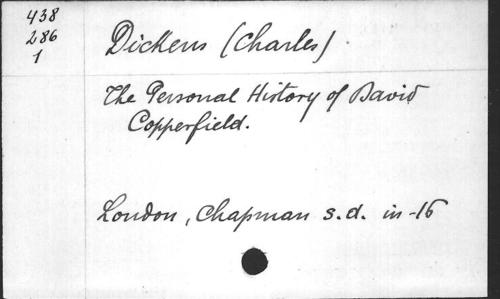 438
286
1
Dickens (Charles)
The Personal History of David
Copperfield.
London, Chapman s.d. in-16